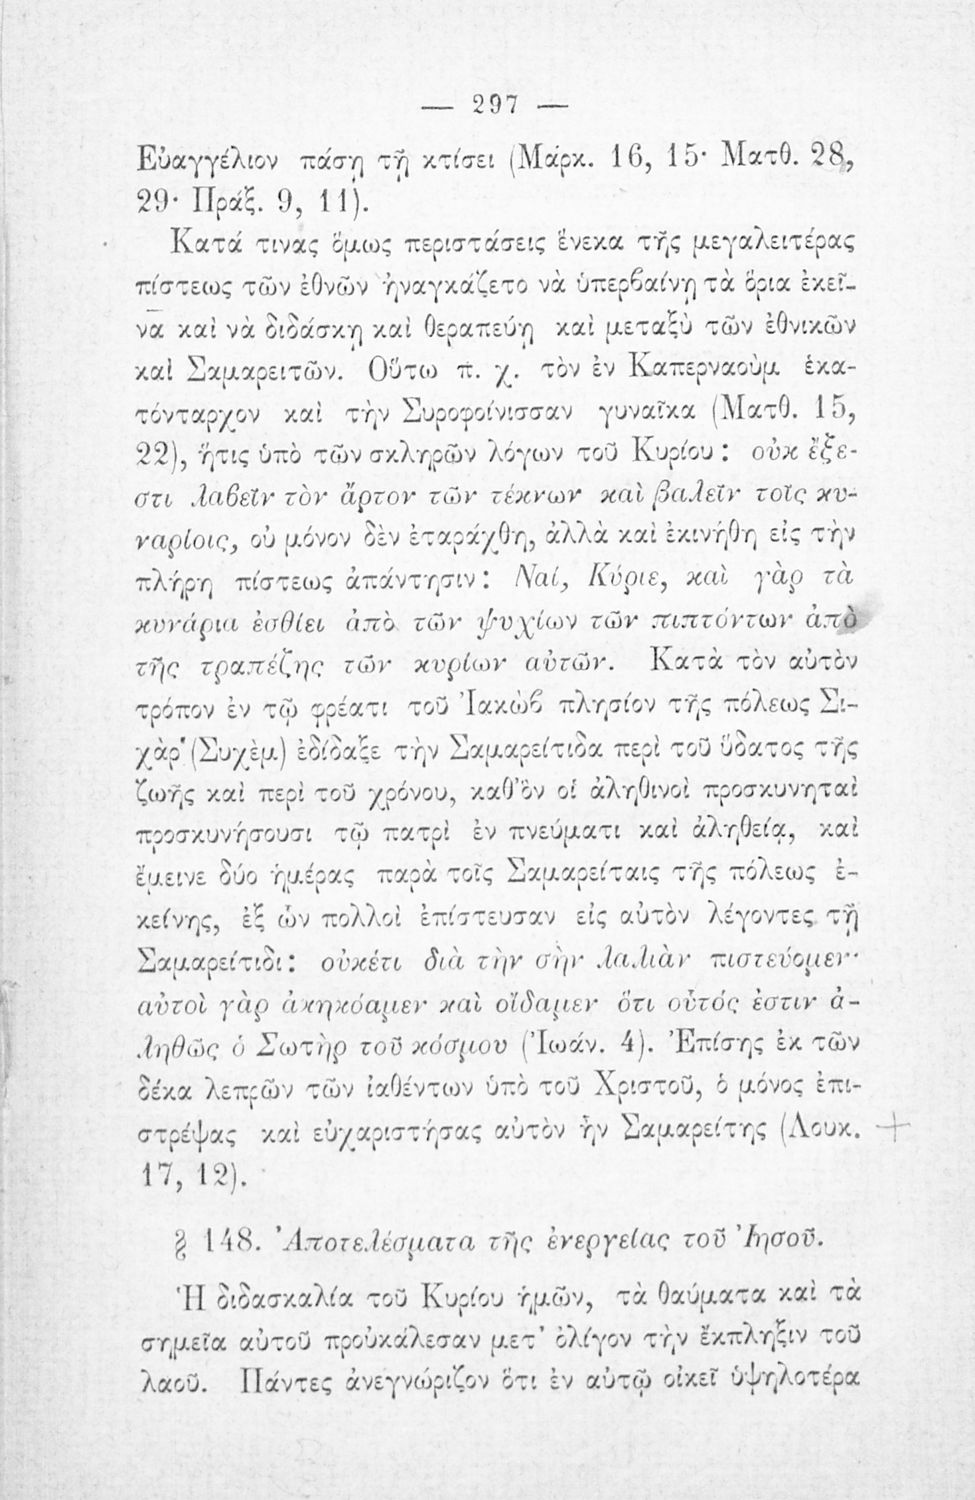 — 297 —
Εὐαγγέλιον πάσῃ τῇ κτίσει (Μάρκ. 16, 15· Ματθ. 28,
29· Πράξ. 9, 11).
Κατά τινας ὅμως περιστάσεις ἕνεκα τῆς μεγαλειτέρας
πίστεως τῶν ἐθνῶν ἠναγκάζετο νὰ ὑπερβαίνῃ τὰ ὅρια ἐκεῖ-
να καὶ νὰ διδάσκῃ καὶ θεραπεύῃ καὶ μεταξὺ τῶν ἐθνικῶν
καὶ Σαμαρειτῶν. Οὕτω π. χ. τὸν ἐν Καπερναοὺμ ἑκα-
τόνταρχον καὶ τὴν Συροφοίνισσαν γυναῖκα (Ματθ. 15,
22), ἥτις ὑπὸ τῶν σκληρῶν λόγων τοῦ Κυρίου: οὐκ ἔξε-
στι λαβεῖν τὸν ἄρτον τῶν τέκνων καὶ βαλεῖν τοῖς κυ-
ναρίοις, οὐ μόνον δὲν ἐταράχθη, ἀλλὰ καὶ ἐκινήθη εἰς τὴν
πλήρη πίστεως ἀπάντησιν: Ναί, Κύριε, καὶ γὰρ τὰ
κυνάρια ἐσθίει ἀπὸ τῶν ψυχίων τῶν πιπτόντων ἀπὸ
τῆς τραπέζης τῶν κυρίων αὐτῶν. Κατὰ τὸν αὐτὸν
τρόπον ἐν τῷ φρέατι τοῦ Ἰακὼβ πλησίον τῆς πόλεως Σι-
χὰρ (Συχὲμ) ἐδίδαξε τὴν Σαμαρείτιδα περὶ τοῦ ὕδατος τῆς
ζωῆς καὶ περὶ τοῦ χρόνου, καθ' ὃν οἱ ἀληθινοὶ προσκυνηταὶ
προσκυνήσουσι τῷ πατρὶ ἐν πνεύματι καὶ ἀληθείᾳ, καὶ
ἔμεινε δύο ἡμέρας παρὰ τοῖς Σαμαρείταις τῆς πόλεως ἐ-
κείνης, ἐξ ὧν πολλοὶ ἐπίστευσαν εἰς αὐτὸν λέγοντες τῇ
Σαμαρείτιδι: οὐκέτι διὰ τὴν σὴν λαλιὰν πιστεύομεν·
αὐτοὶ γὰρ ἀκηκόαμεν καὶ οἴδαμεν ὅτι οὗτός ἐστιν ἀ-
ληθῶς ὁ Σωτὴρ τοῦ κόσμου (Ἰωάν. 4). Ἐπίσης ἐκ τῶν
δέκα λεπρῶν τῶν ἰαθέντων ὑπὸ τοῦ Χριστοῦ, ὁ μόνος ἐπι-
στρέψας καὶ εὐχαριστήσας αὐτὸν ἦν Σαμαρείτης (Λουκ.
17, 12).
§ 148. Ἀποτελέσματα τῆς ἐνεργείας τοῦ Ἰησοῦ.
Ἡ διδασκαλία τοῦ Κυρίου ἡμῶν, τὰ θαύματα καὶ τὰ
σημεῖα αὐτοῦ προὐκάλεσαν μετ' ὀλίγον τὴν ἔκπληξιν τοῦ
λαοῦ. Πάντες ἀνεγνώριζον ὅτι ἐν αὐτῷ οἰκεῖ ὑψηλοτέρα